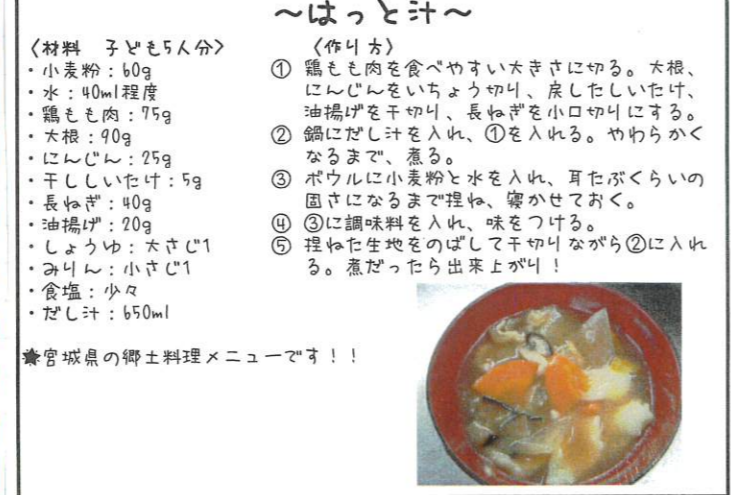 ～はっと汁～
〈材料　子ども5人分〉
・小麦粉：60g
・水：40ml程度
・鶏もも肉：75g
・大根：90g
・にんじん：25g
・干ししいたけ：5g
・長ねぎ：40g
・油揚げ：20g
・しょうゆ：大さじ1
・みりん：小さじ1
・食塩：少々
・だし汁：650ml
★宮城県の郷土料理メニューです！！
〈作り方〉
① 鶏もも肉を食べやすい大きさに切る。大根、
にんじんをいちょう切り、戻したしいたけ、
油揚げを千切り、長ねぎを小口切りにする。
② 鍋にだし汁を入れ、①を入れる。やわらかく
なるまで、煮る。
③ ボウルに小麦粉と水を入れ、耳たぶくらいの
固さになるまで捏ね、寝かせておく。
④ ③に調味料を入れ、味をつける。
⑤ 捏ねた生地をのばして千切りながら②に入れ
る。煮だったら出来上がり！